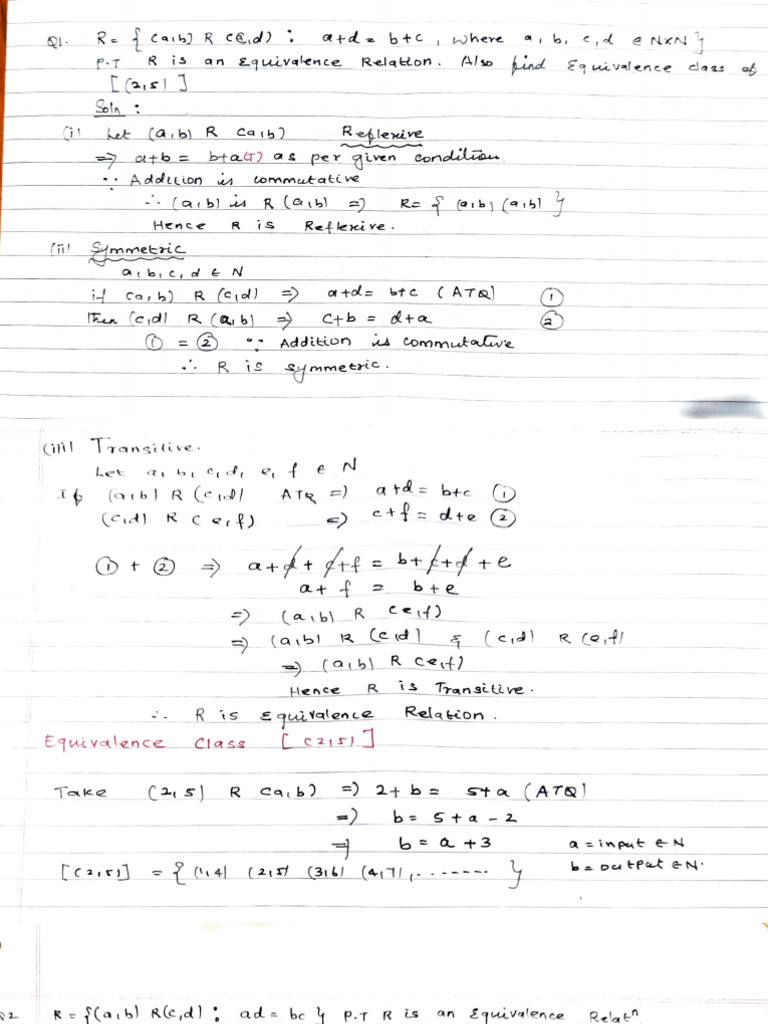 Q1. R = { (a,b) R (c,d) : a+d = b+c , where a, b, c, d ∈ N×N }
P.T R is an Equivalence Relation. Also find Equivalence class of
[(2,5)]
Soln :
(i) Let (a,b) R (a,b) Reflexive
⇒ a+b = b+a (T) as per given condition
∵ Addition is commutative
∴ (a,b) is R (a,b) ⇒ R = { (a,b) (a,b) }
Hence R is Reflexive.
(ii) Symmetric
a,b,c,d ∈ N
if (a,b) R (c,d) ⇒ a+d = b+c (ATQ) ①
Then (c,d) R (a,b) ⇒ c+b = d+a ②
① = ② ∵ Addition is commutative
∴ R is symmetric.
(iii) Transitive.
Let a, b, c, d, e, f ∈ N
If (a,b) R (c,d) ATQ ⇒ a+d = b+c ①
(c,d) R (e,f) ⇒ c+f = d+e ②
① + ② ⇒ a+d+c+f = b+c+d+e
a+ f = b+e
⇒ (a,b) R (e,f)
⇒ (a,b) R (c,d) & (c,d) R (e,f)
⇒ (a,b) R (e,f)
Hence R is Transitive.
∴ R is Equivalence Relation.
Equivalence Class [(2,5)]
Take (2,5) R (a,b) ⇒ 2+b = 5+a (ATQ)
⇒ b = 5+a-2
⇒ b = a+3 a = input ∈ N
[(2,5)] = { (1,4) (2,5) (3,6) (4,7), ....... } b = output ∈ N.
Q2 R = {(a,b) R(c,d) : ad = bc } P.T R is an Equivalence Relatn